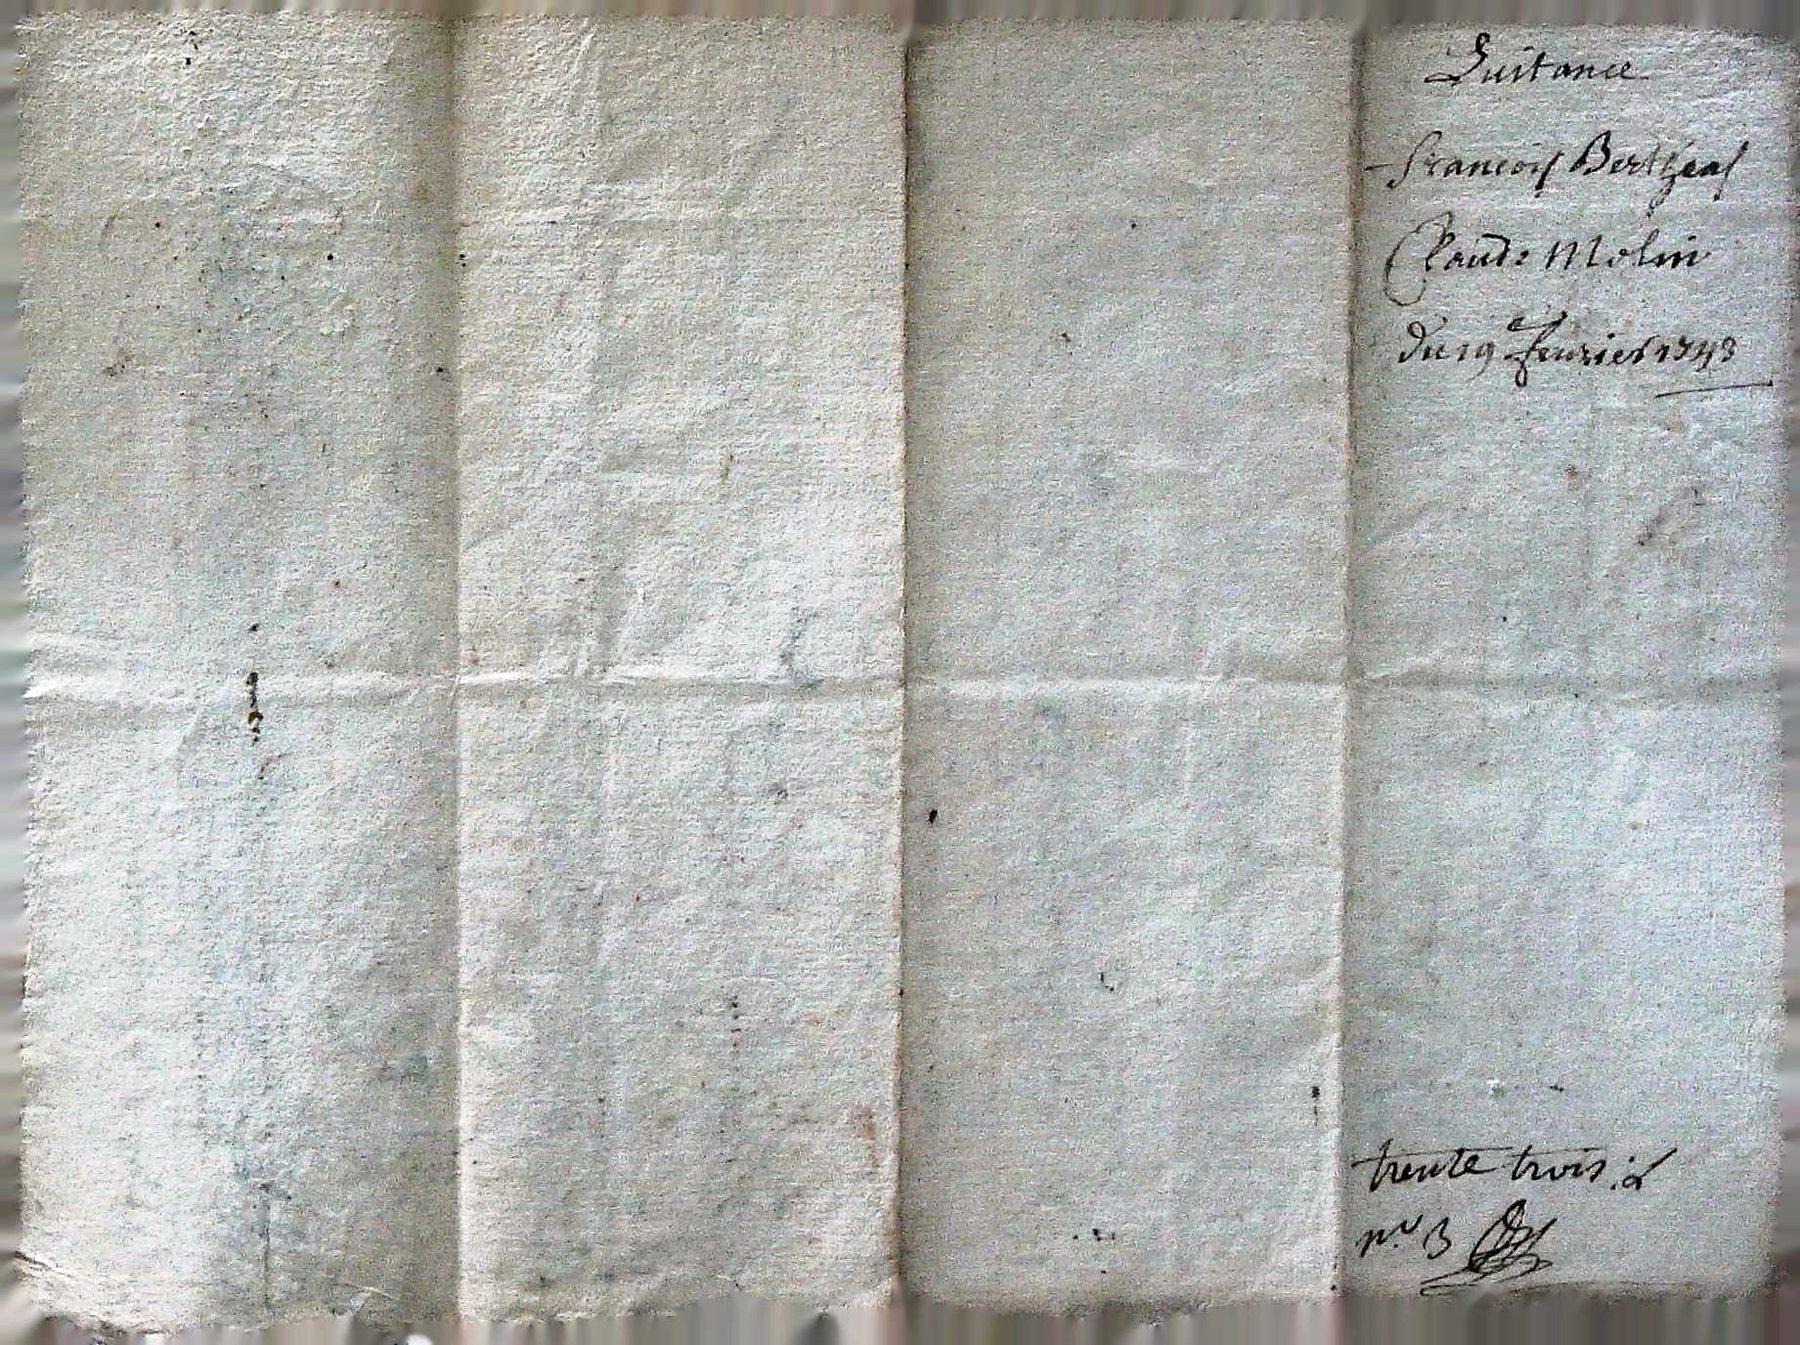 Quitance
francois Bertheas
Claude Molin
du 19 feurier 1743
trente trois
n.º B